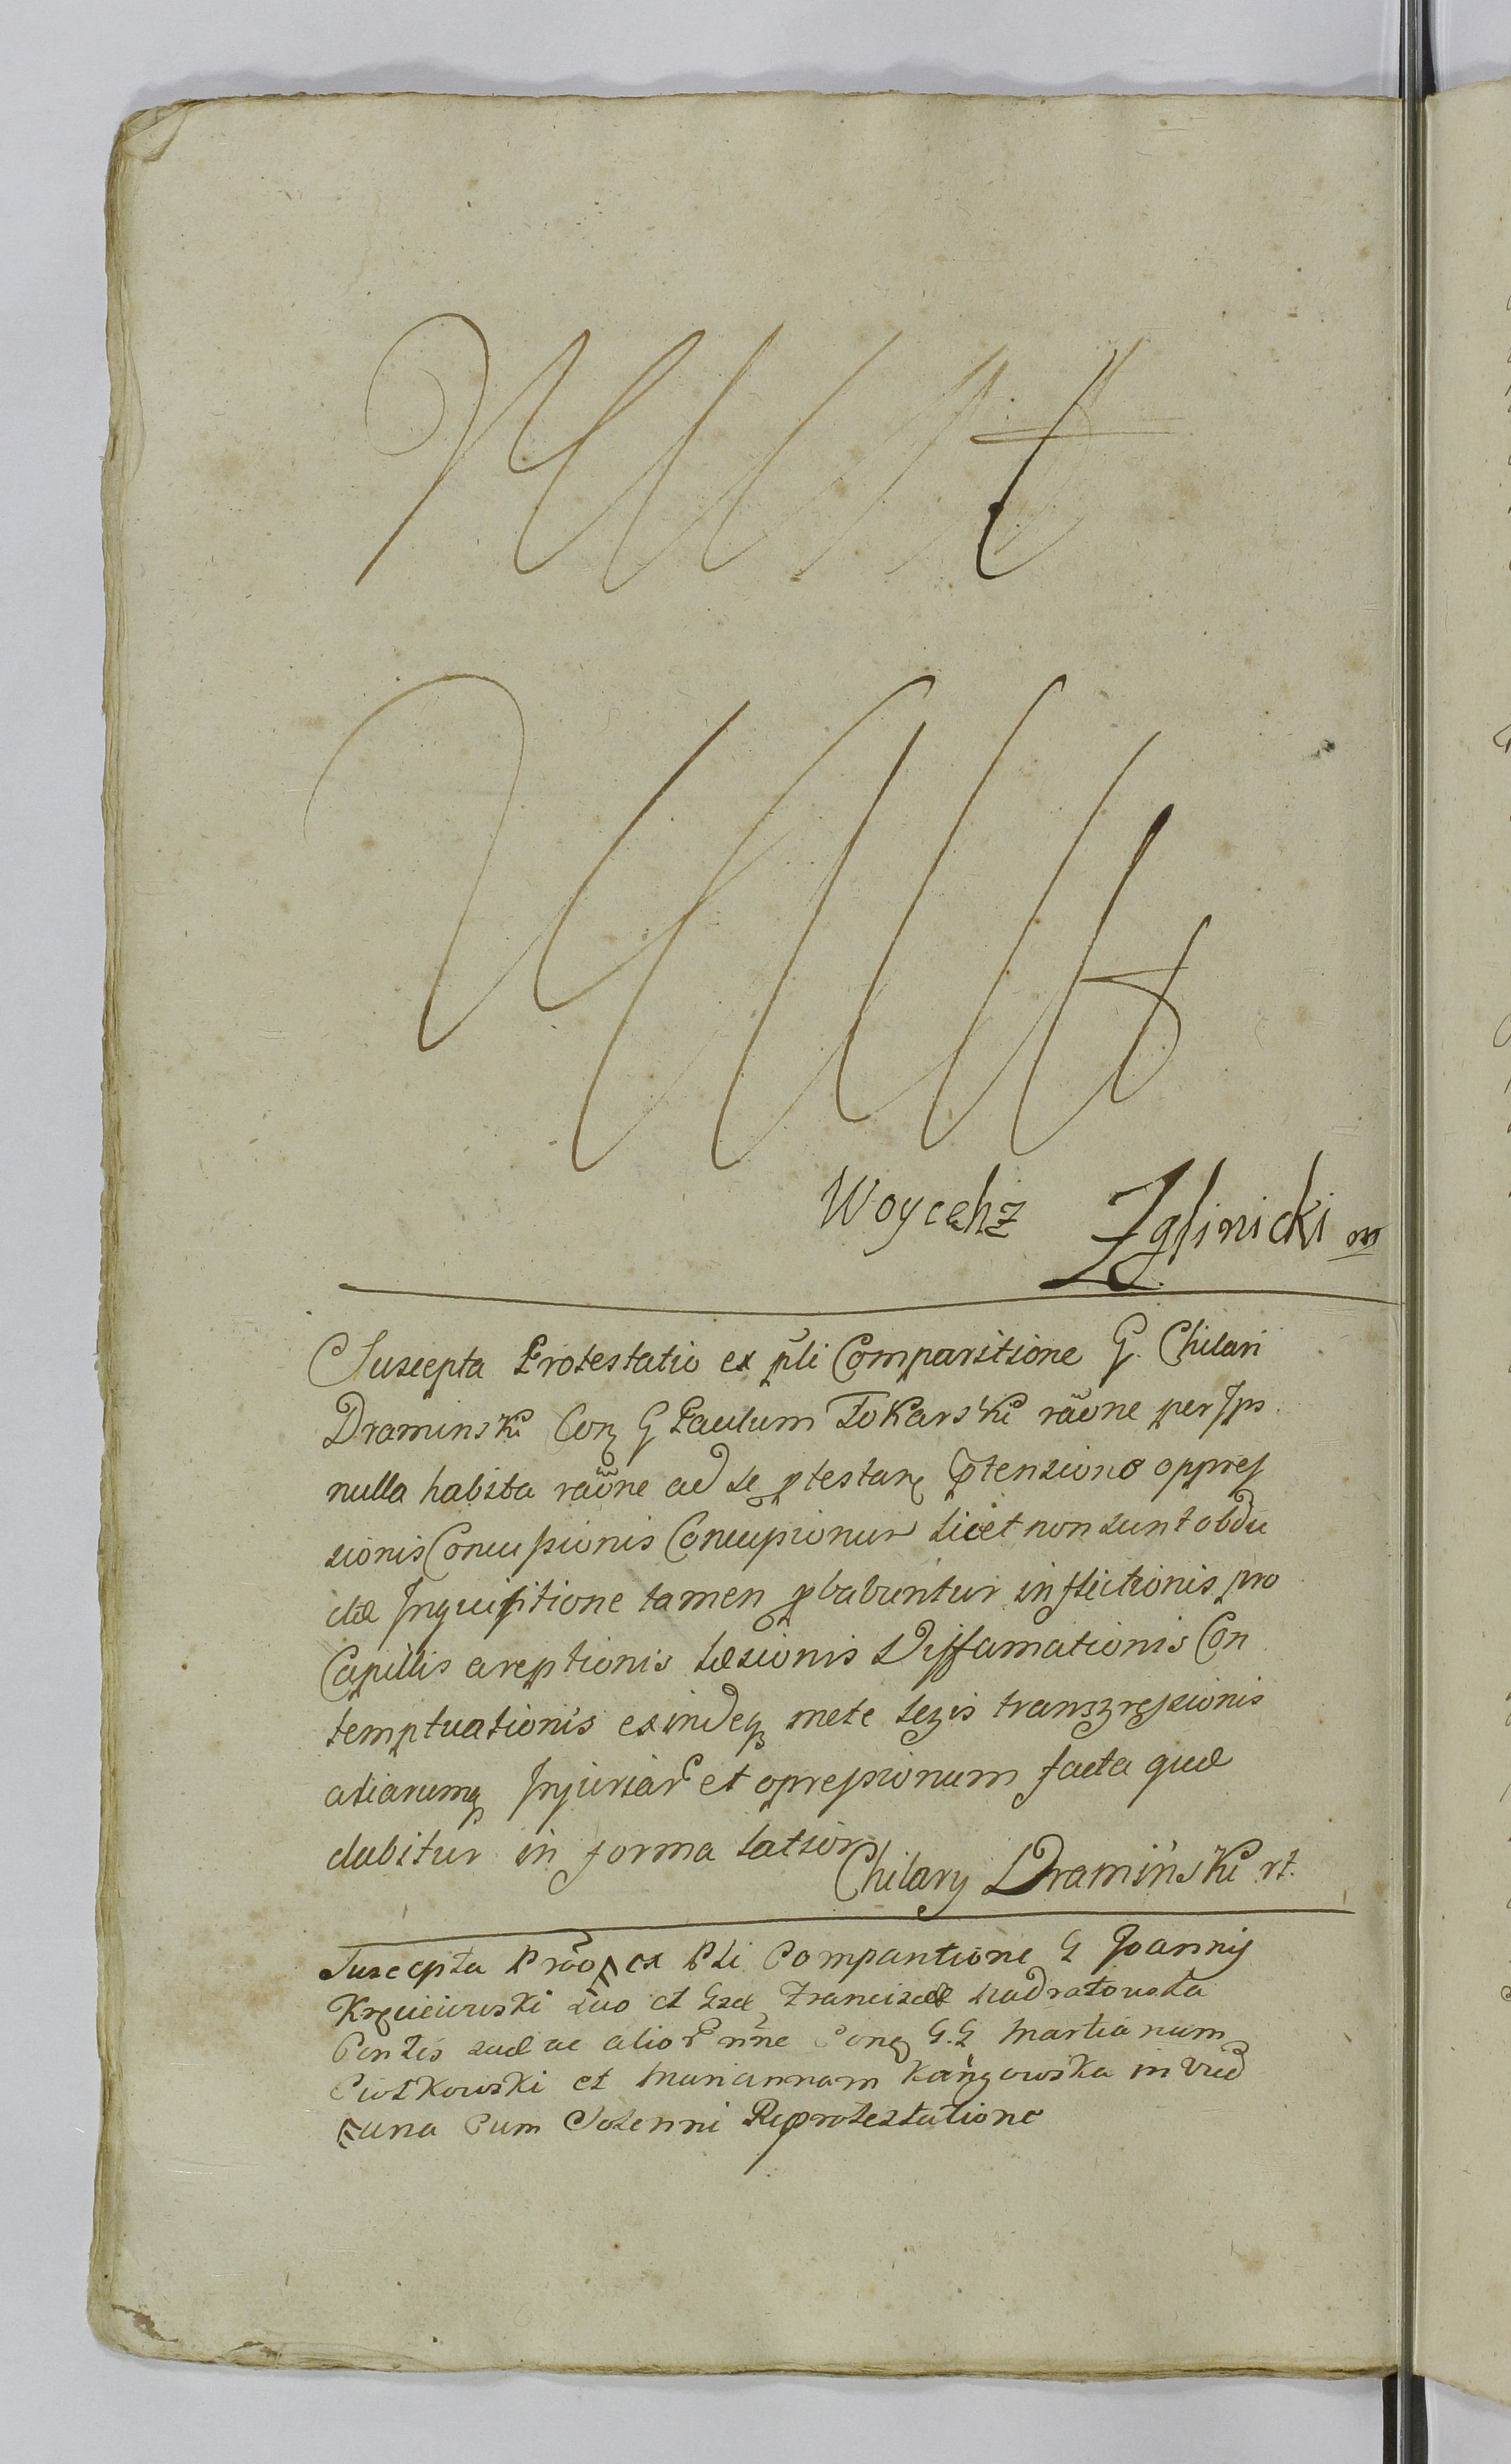 Woycehz Zglinicki m
Suscepta Protestatio ex pli Comparitione G. Chilari
Draminski Con G Paulum Tokarski raone per Ips
nulla habita raone ad se ptestan ptensione oppres
sionis Concussionis licet non sunt obdu
ctæ Inquisitione tamen pbabuntur inflictionis pro
Capillis areptionis læsionis Diffamationis Con
temptuationis exindeq mete legis transgressionis
aliarumq Injuriar et opressionum facta quæ
dabitur in forma latiori
Chilary Dramiński rt.
Suscepta ex Pli Comparitione G Joannis
suo et Gsæ Franciscæ
suæ ac alior nne Conq G.G Martianum
Ciołkowski et Mariannam in
una Cum Solenni Reprotestatione